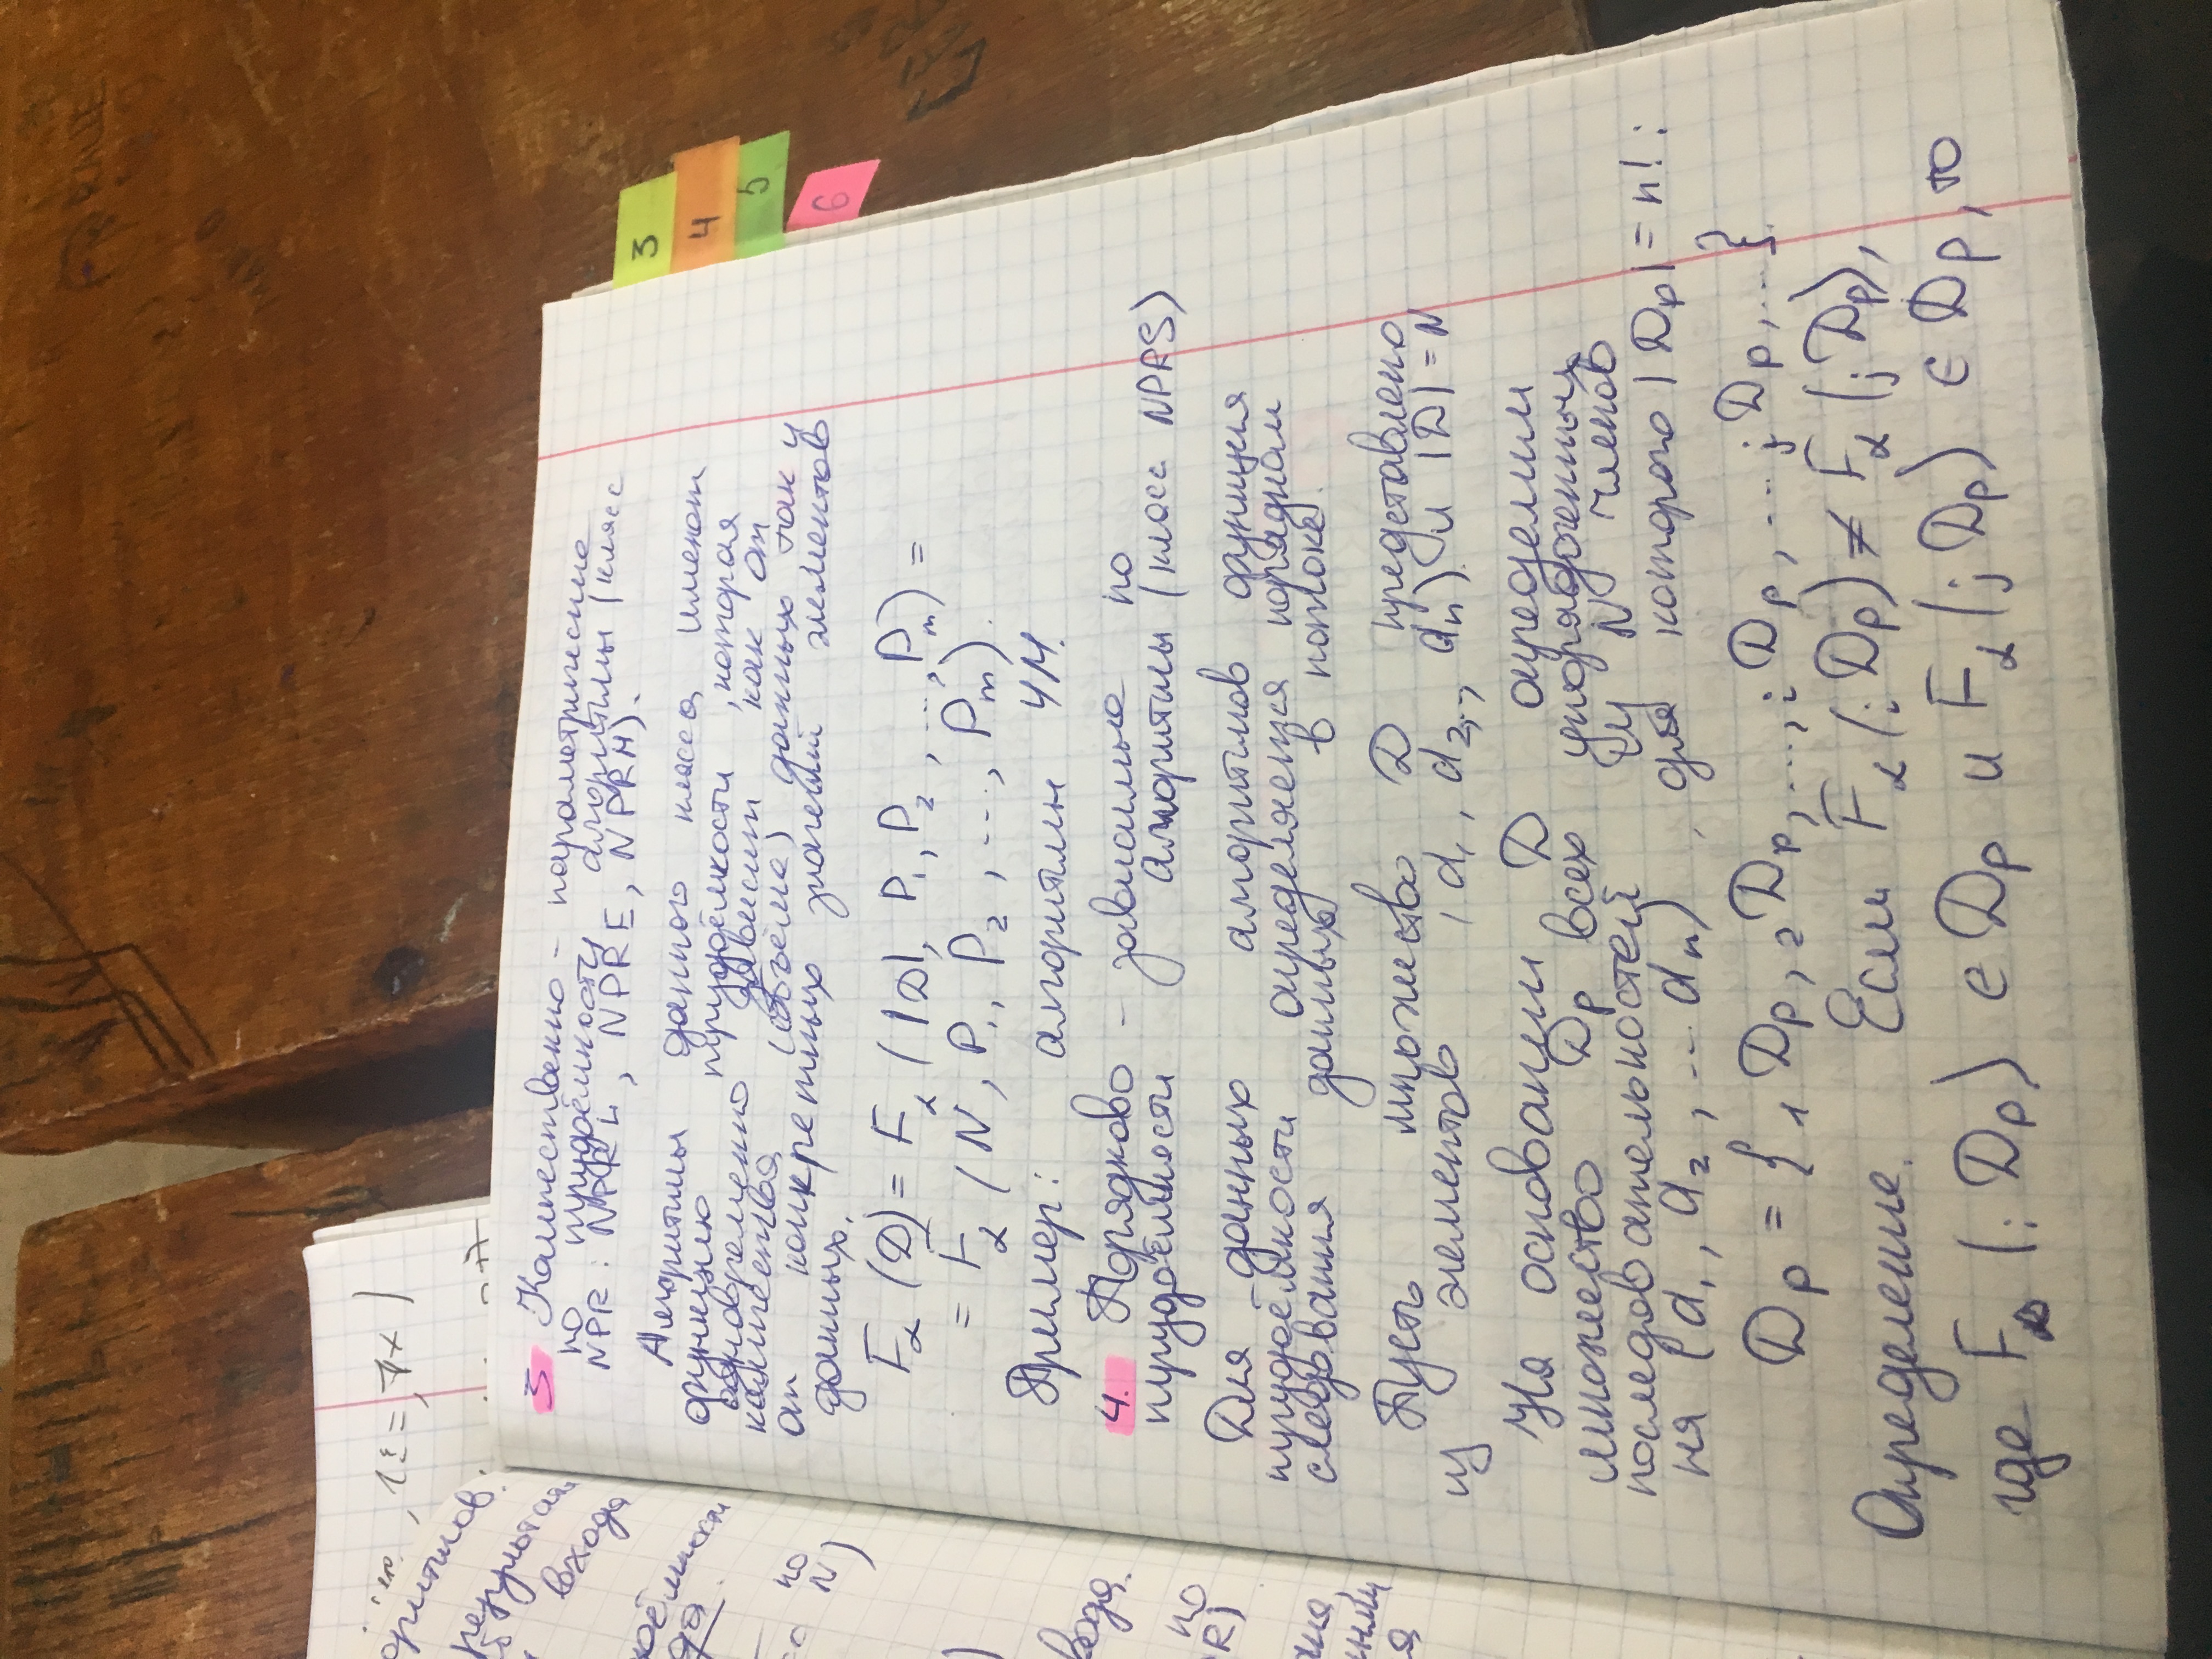 оритмов.
результат
входа
коёмкости
по
N)
, 1 i = , 7 x )
3 Количественно - параметрические
по трудоёмкости алгоритмы (класс
NPR : NPRL, NPRE, NPRH).
Алгоритмы данного класса имеют
функцию трудоёмкости, которая
одновременно зависит как от
количества (объёма) данных так и
от конкретных значений элементов
данных.
F_α (D) = F_α (|D|, P₁, P₂, ..., Pₘ) =
= F_α (N, P₁, P₂, ..., Pₘ).
Пример: алгоритмы ЧМ.
4. Порядково - зависимые по
трудоёмкости алгоритмы (класс NPRS)
Для данных алгоритмов функция
трудоёмкости определяется порядком
следования данных в потоке.
Пусть множество D представлено
из элементов (d₁, d₂,.., dₙ) и |D| = N
На основании D определим
множество Dp всех упорядоченных
последовательностей из N членов
ня (d₁, d₂, ... dₙ), для которого |Dp| = n! :
Dp = {₁Dp, ₂Dp, ..., ᵢDp, ... ⱼDp, ...}.
Определение. Если F_α (ᵢDp) ≠ F_α (ⱼDp),
где F_α (ᵢDp) ∈ Dp и F_α (ⱼDp) ∈ Dp, то
3
4
5
6